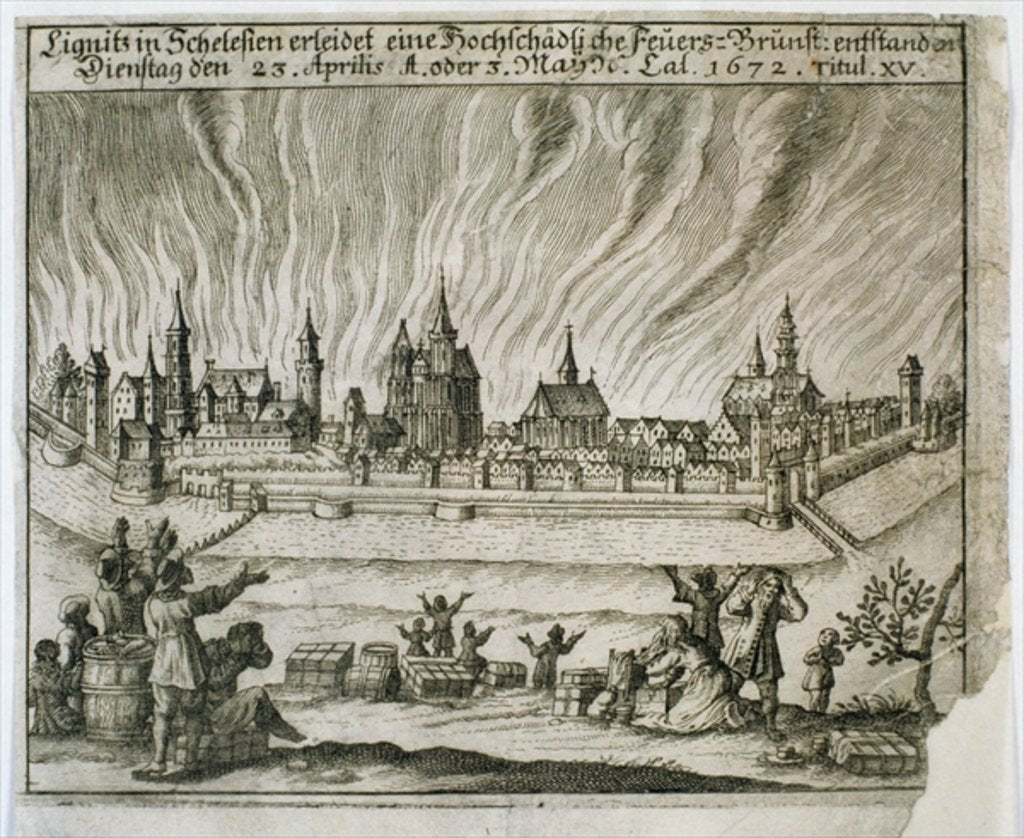 Lignitz in Schelesien erleidet eine Hochschädliche Feüers=Brünst: entstanden
Dienstag den 23. Aprilis A. oder 3. May N. Cal. 1672. Titul. XV.